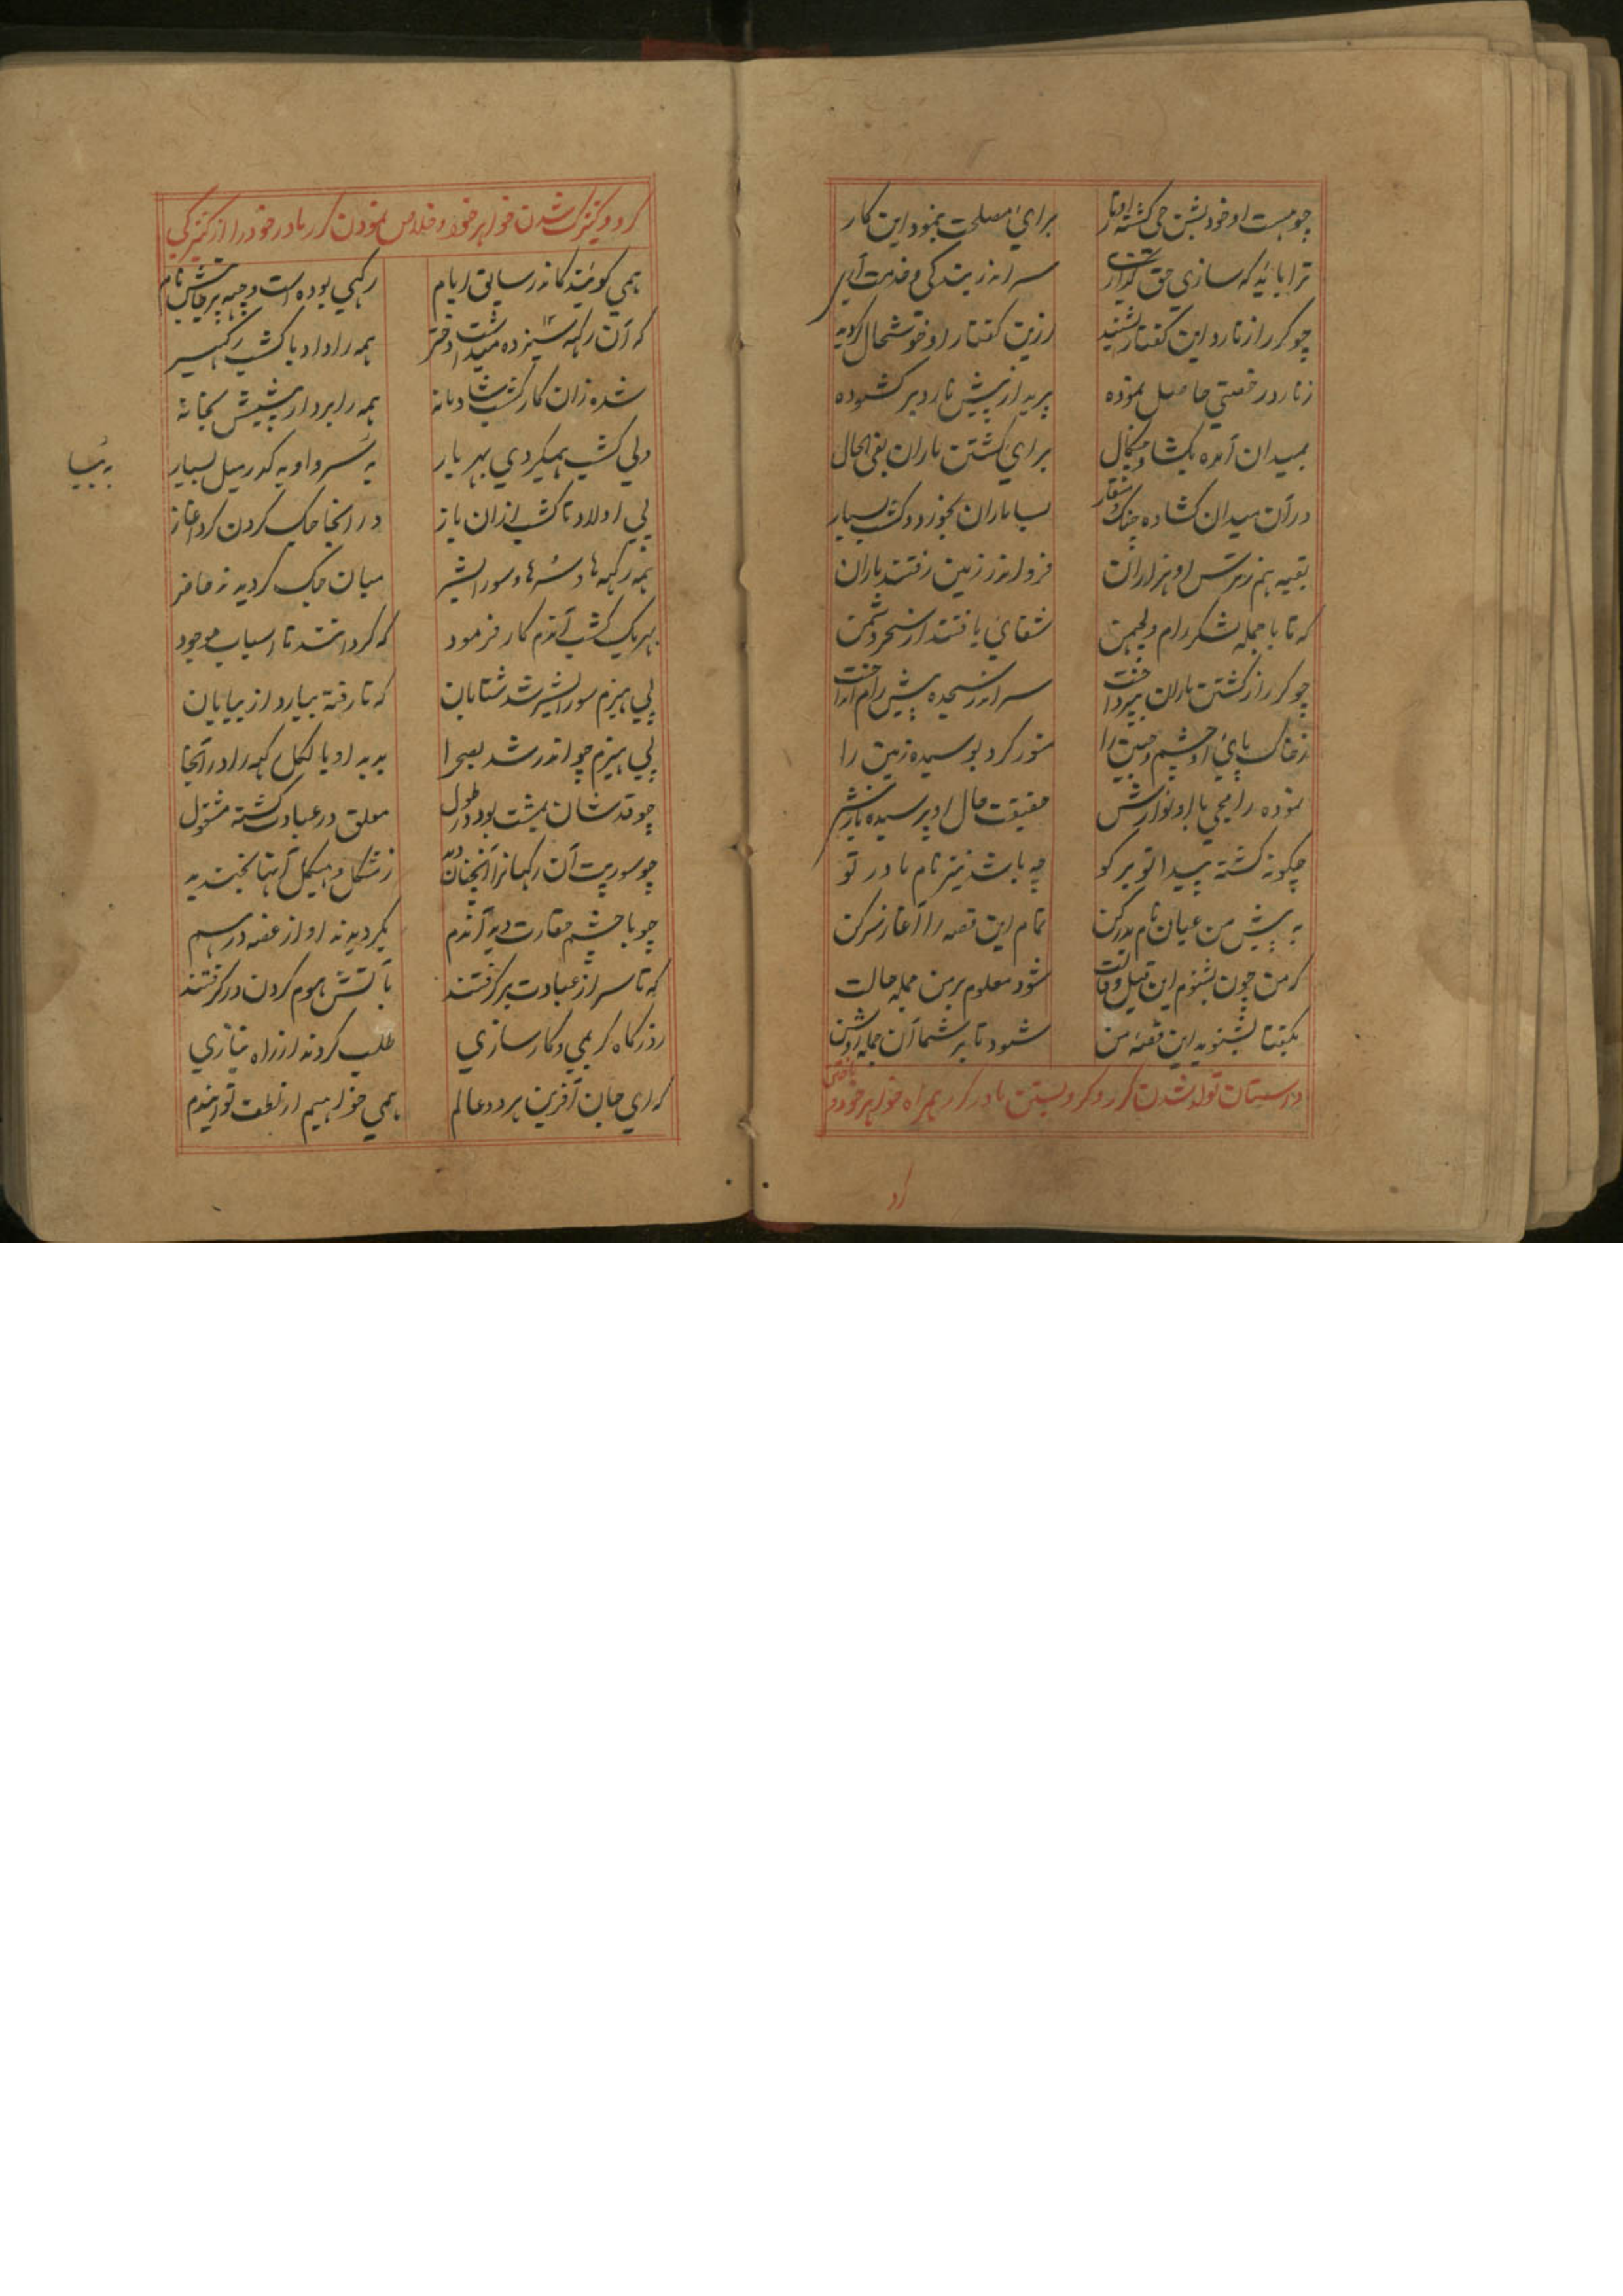 چو هست او خود بشن جی گشته اوتار برای مصلحت بنمود این کار
ترا باید که سازی حق گذاری سر اندر بندگی و خدمت آری
چو گرر از نارد این گفتار بشنید ازین گفتار او خوشحال گردید
ز نارد رخصتی حاصل نموده پرید از پیش نارد پر گشوده
بمیدان آمده بگشاد چنگال برای کشتن ماران بفی الحال
در آن میدان گشاده چنگ و منقار بسا ماران بخورد و کشت بسیار
بقیه هم ز ترس او هزاران فرو اندر زمین رفتند ماران
که تا با جمله لشکر رام و لچهمن شفای یافتند از سحر دشمن
چو گرر از کشتن ماران بپرداخت سر اندر سجده پیش رام انداخت
ز خاک پای او چشم و جبین را منور کرد بوسیده زمین را
نموده رامجی با او نوازش حقیقت حال او پرسیده نازش
چگونه گشته پیدا تو بر گو چه باشد نیز نام مادر تو
به پیش من عیان نام پدر کن تمام این قصه را آغاز سر کن
که من چون بشنوم این قیل و قالت شود معلوم بر من جمله حالت
بگفتا بشنوید این قصه من شود تا بر شما آن جمله روشن
داستان تولد شدن گرر و گرو بستن مادر گرر همراه خواهر خود و باختن
گرو
گرو و کنیزک شدن خواهر خود و خلاص نمودن گرر مادر خود را از کنیزکی
همی گویند کاندر سابق ایام رکهی بوده است وجیه پرجاپتش نام
که آن رکهه سیزده میداشت دختر همه را داد با کشپ رکهیسر
شده زان کار کشپ شادمانه همه را برد از پیشش بخانه
ولی کشپ همیکردی بهر یار به سرو او به کدر میل بسیار
پی اولاد تا کشپ از آن باز در انجا جک کردن کرد آغاز
همه رکهه ها و سرها و سور ایشر میان جک گردیدند حاضر
بهریک کشپ آندم کار فرمود که گردانند تا اسباب موجود
پی هیزم سور ایشر شد شتابان که تا رفته بیارد از بیابان
پی هیزم چو اندر شد بصحرا بدید او بالکهل رکهه را در آنجا
چو قد شان بمشت بود در طول معلق در عبادت گشته مشغول
چو سورپت آن رکهانرا آنچنان دید ز شکل و هیکل آنها بخندید
چو با چشم حقارت دید آندم بگردیدند او از غصه درهم
که تا سر از عبادت برگرفتند بآتش هوم کردن در گرفتند
ز درگاه کریمی و کارسازی طلب کردند از راه نیازی
که ای جان آفرین هر دو عالم همی خواهیم از لطف تو ایندم